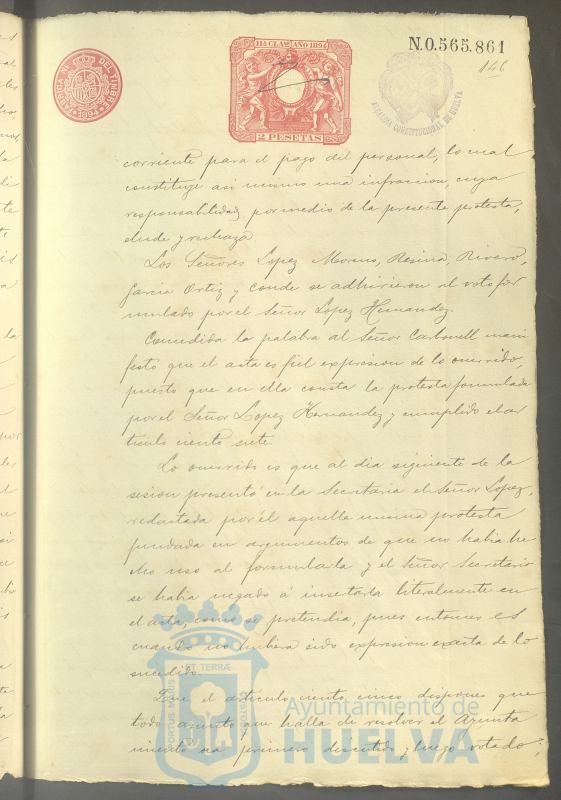 N.0.565.861
146
11ª CLASE AÑO 1894
2 PESETAS
ALCALDIA CONSTITUCIONAL DE HUELVA
corriente para el pago del personal, lo cual
constituye asi mismo una infraccion, cuya
responsabilidad, por medio de la presente protesta,
elude y rechaza.
Los Señores Lopez Moreno, Resina, Rivero,
Garcia Ortiz y Conde se adhirieron al voto for
mulado por el Señor Lopez Hernandez.
Concedida la palabra al Señor Carbonell mani
festo que el acta es fiel expresion de lo ocurrido,
puesto que en ella consta la protesta formulada
por el Señor Lopez Hernandez y cumplido el ar
ticulo ciento siete.
Lo ocurrido es que al dia siguiente de la
sesion presentó en la Secretaria el Señor Lopez,
redactada por él aquella misma protesta
fundada en argumentos de que no habia he
cho uso al formularla y el Señor Secretario
se habia negado á insertarla literalmente en
el acta, como se pretendia, pues entonces es
cuando no hubiera sido expresion exacta de lo
sucedido.
Que el articulo ciento cinco dispone que
todo asunto que halla de resolver el Ayunta
miento sea primero discutido y luego votado;
PORTUS MARIS ET TERRÆ CUSTODIA
Ayuntamiento de
HUELVA